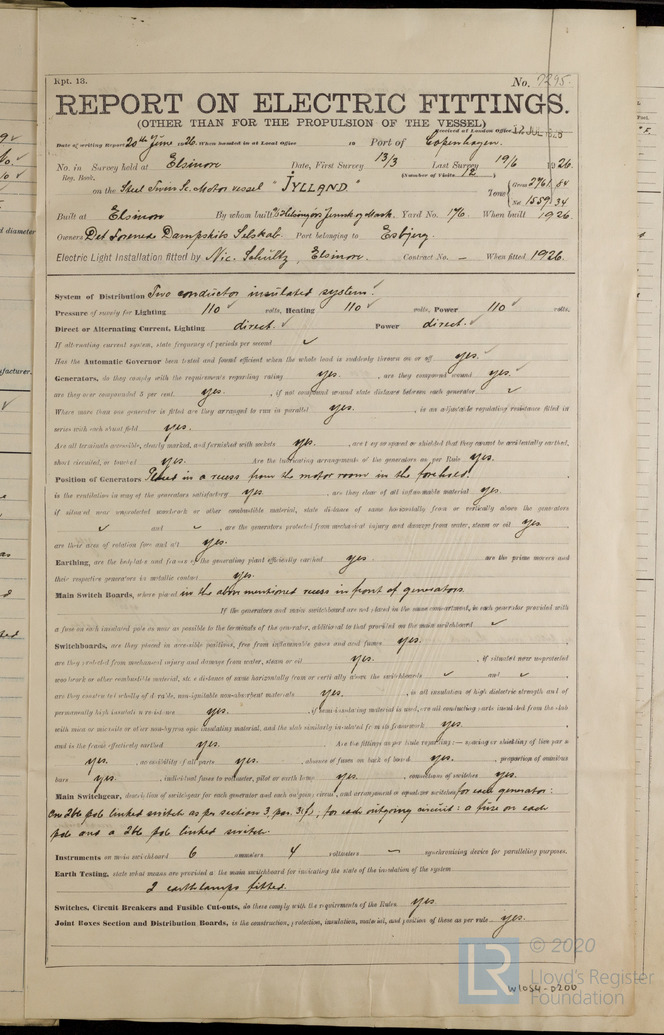 Rpt. 13.
No. 7295.
REPORT ON ELECTRIC FITTINGS.
(OTHER THAN FOR THE PROPULSION OF THE VESSEL)
Received at London Office 12 JUL 1926
Date of writing Report 20th June 1926. When handed in at Local Office 19 Port of Copenhagen.
No. in Survey held at Elsinore Date, First Survey 13/3 Last Survey 19/6 1926.
Reg. Book. (Number of Visits 12)
on the Steel Twin Sc. Motor vessel "JYLLAND." Tons { Gross 2761.84
Net 1559.34
Built at Elsinore By whom built Yard No. 176 When built 1926
Owners Det Forenede Dampskibs Selskab. Port belonging to Esbjerg.
Electric Light Installation fitted by Nic. Schultz, Elsinore. Contract No. — When fitted 1926.
System of Distribution Two conductor insulated system. ✓
Pressure of supply for Lighting 110 ✓ volts, Heating 110 ✓ volts, Power 110 ✓ volts.
Direct or Alternating Current, Lighting direct. ✓ Power direct. ✓
If alternating current system, state frequency of periods per second ✓
Has the Automatic Governor been tested and found efficient when the whole load is suddenly thrown on or off yes. ✓
Generators, do they comply with the requirements regarding rating yes. ✓ , are they compound wound yes. ✓
are they over compounded 5 per cent. yes. , if not compound wound state distance between each generator ✓
Where more than one generator is fitted are they arranged to run in parallel yes. , is an adjustable regulating resistance fitted in
series with each shunt field yes.
Are all terminals accessible, clearly marked, and furnished with sockets yes. , are they so spaced or shielded that they cannot be accidentally earthed,
short circuited, or touched yes. Are the lubricating arrangements of the generators as per Rule yes.
Position of Generators Placed in a recess from the motor room in the forehold.
is the ventilation in way of the generators satisfactory yes. , are they clear of all inflammable material yes.
if situated near unprotected woodwork or other combustible material, state distance of same horizontally from or vertically above the generators
✓ and ✓ , are the generators protected from mechanical injury and damage from water, steam or oil yes.
are their axes of rotation fore and aft yes.
Earthing, are the bedplates and frames of the generating plant efficiently earthed yes. are the prime movers and
their respective generators in metallic contact yes.
Main Switch Boards, where placed in the above mentioned recess in front of generators
If the generators and main switchboard are not placed in the same compartment, is each generator provided with
a fuse on each insulated pole as near as possible to the terminals of the generator, additional to that provided on the main switchboard ✓
Switchboards, are they placed in accessible positions, free from inflammable gases and acid fumes yes.
are they protected from mechanical injury and damage from water, steam or oil yes. , if situated near unprotected
woodwork or other combustible material, state distance of same horizontally from or vertically above the switchboards ✓ and ✓
are they constructed wholly of durable, non-ignitable non-absorbent materials yes. , is all insulation of high dielectric strength and of
permanently high insulation resistance yes. , if semi-insulating material is used, are all conducting parts insulated from the slab
with mica or micanite or other non-hygroscopic insulating material, and the slab similarly insulated from its framework yes.
and is the frame effectively earthed yes. Are the fittings as per Rule regarding:— spacing or shielding of live parts
yes. , accessibility of all parts yes. , absence of fuses on back of board yes. , proportion of omnibus
bars yes. , individual fuses to voltmeter, pilot or earth lamp yes. , connections of switches yes.
Main Switchgear, description of switchgear for each generator and each outgoing circuit, and arrangement of equaliser switches for each generator:
One dble pole linked switch as per section 3, par. 3(f), for each outgoing circuit: a fuse on each
pole and a dble pole linked switch.
Instruments on main switchboard 6 ammeters 4 voltmeters — synchronising device for paralleling purposes.
Earth Testing, state what means are provided at the main switchboard for indicating the state of the insulation of the system
2 earthlamps fitted.
Switches, Circuit Breakers and Fusible Cut-outs, do these comply with the requirements of the Rules yes
Joint Boxes Section and Distribution Boards, is the construction, protection, insulation, material, and position of these as per rule yes.
© 2020
LR Lloyd's Register
Foundation
W1054-0200